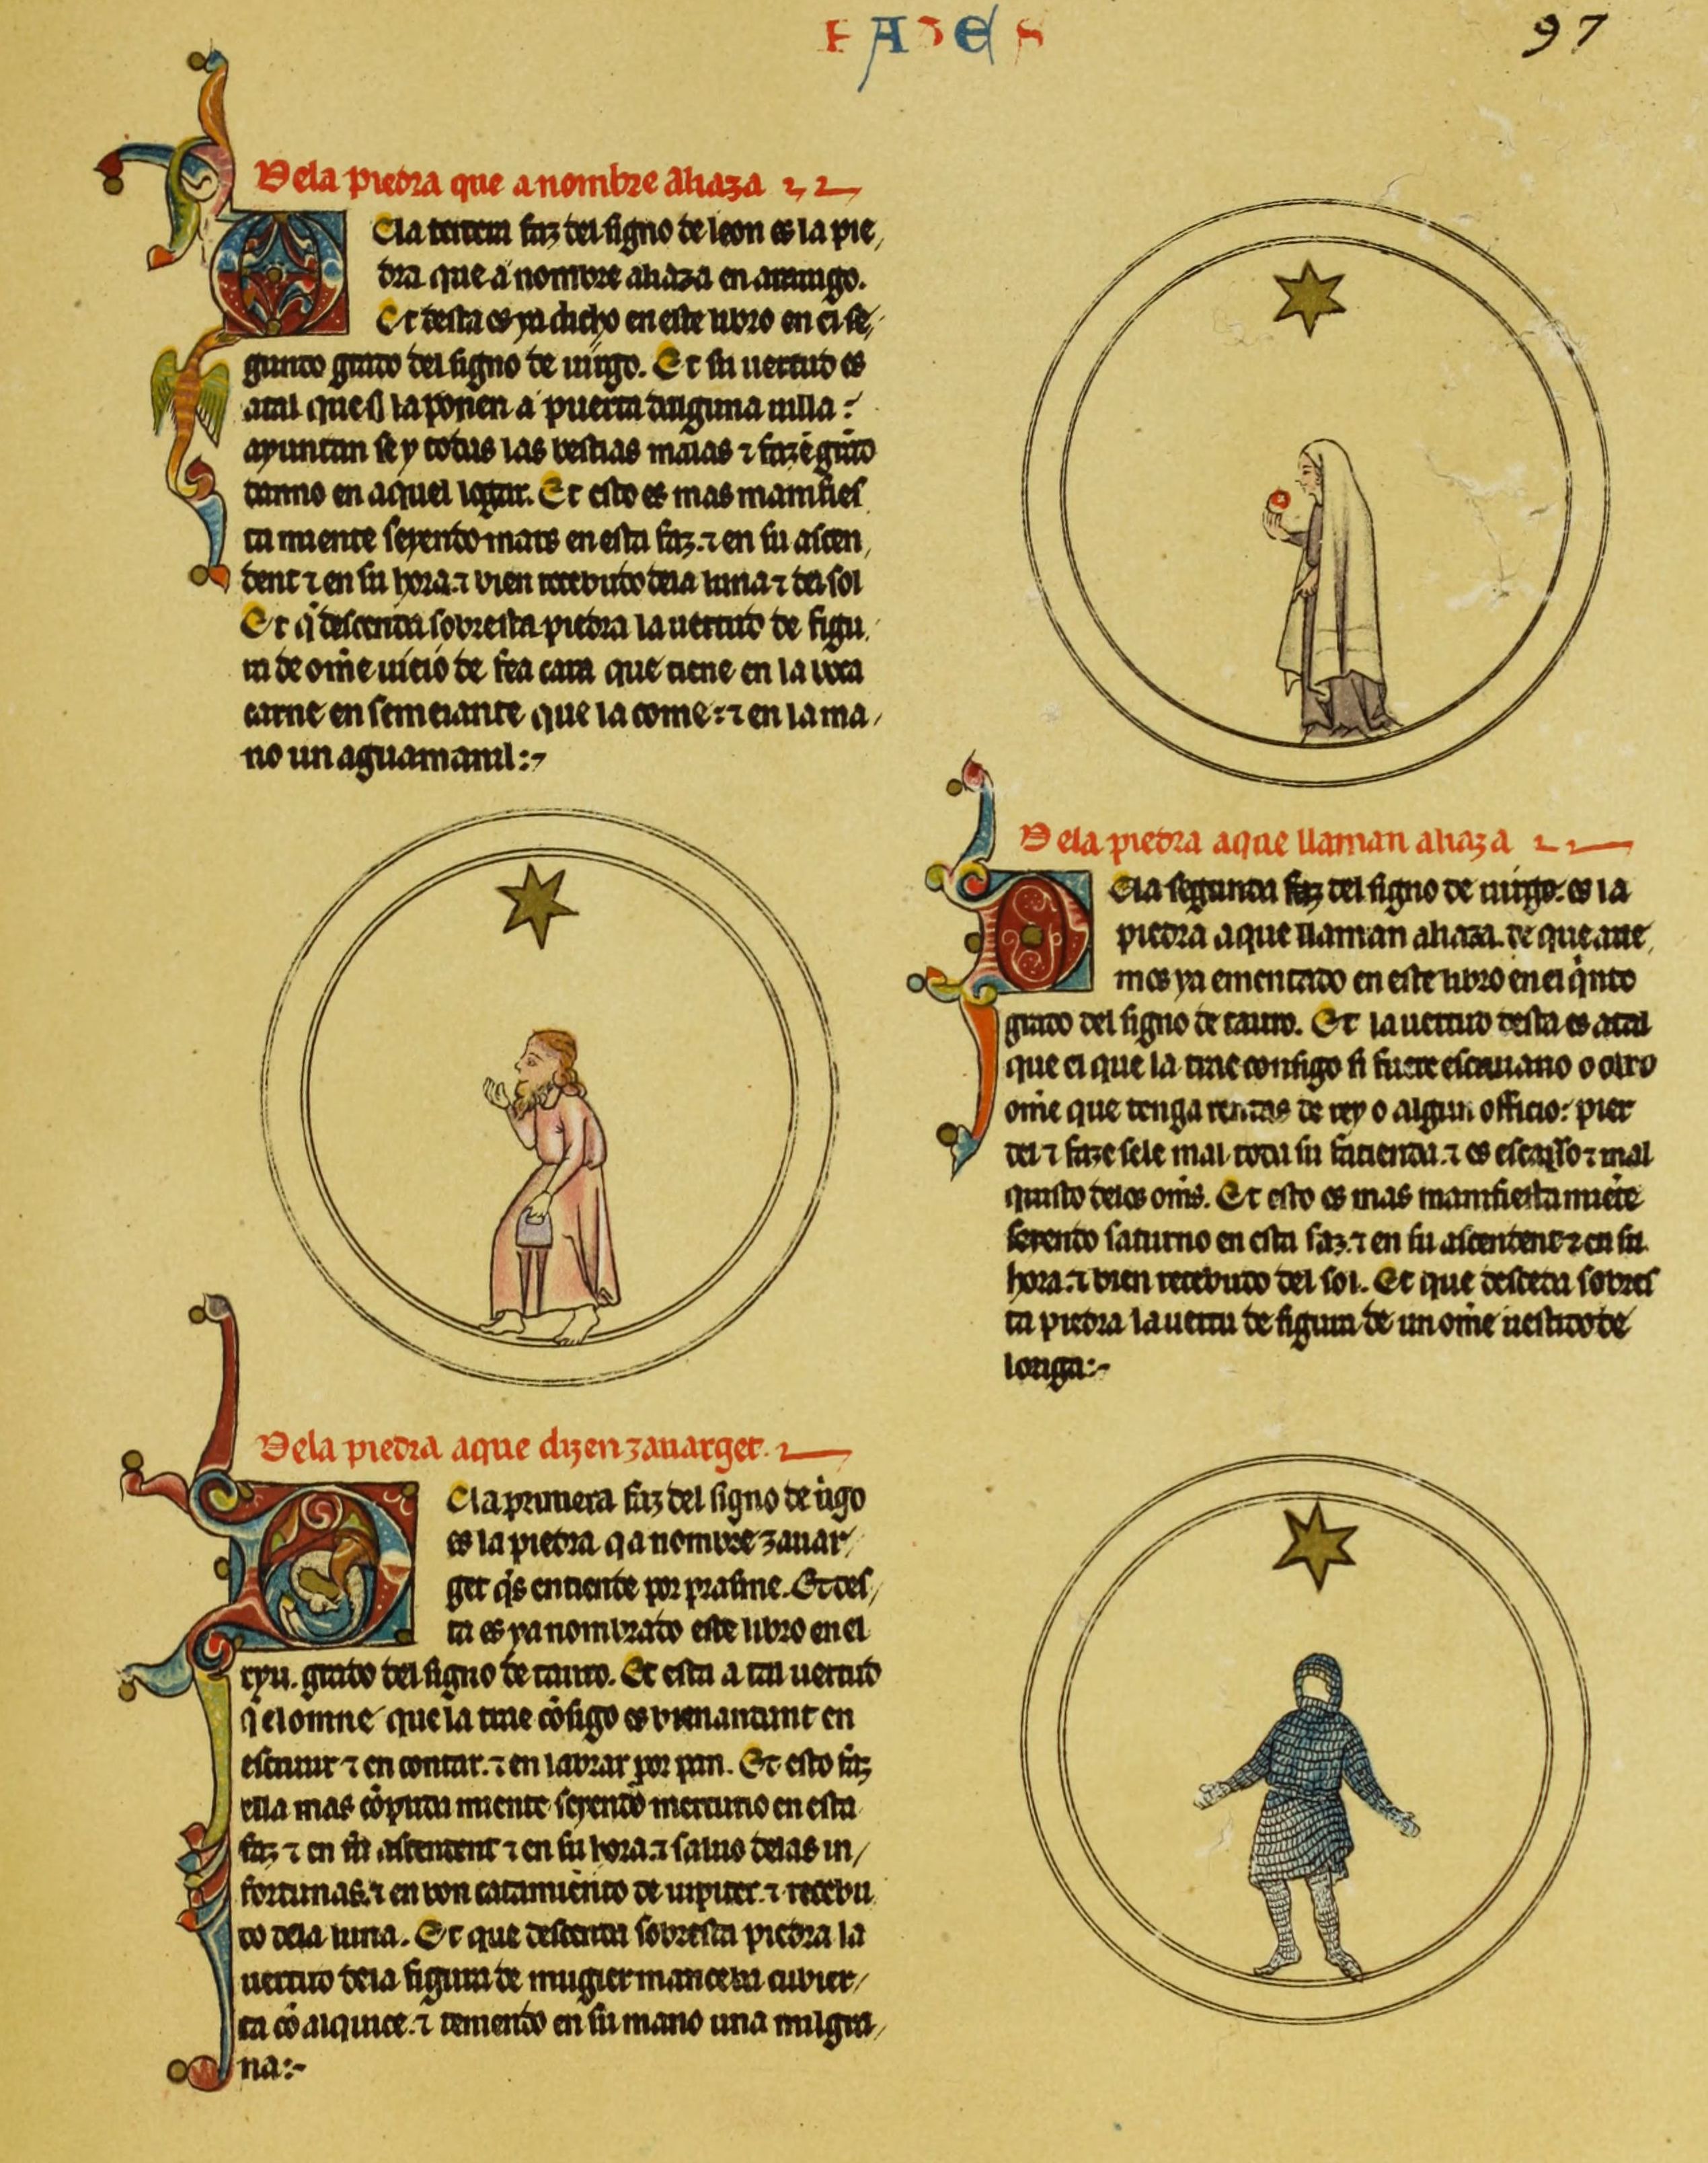 FAZES
97
Dela piedra que a nombre aliaza
De la tercera faz del signo de leon es la pie
dra que a nombre aliaza en arauigo.
Et desta es ya dicho en este libro en el se
gundo grado del signo de uirgo. Et su uertud es
atal que si la ponen a puerta dalguna uilla:
ayuntan se y todas las bestias malas ⁊ fazē grād
danno en aquel logar. Et esto es mas manifies
ta miente seyendo mars en esta faz. ⁊ en su ascen
dent ⁊ en su hora. ⁊ bien recebudo dela luna ⁊ del sol
Et q̄ descenda sobresta piedra la uertud de figu
ra de om̄e uieio de fea cara que tiene en la boca
carne en semeiante que la come: ⁊ en la ma
no un aguamanil:
Dela piedra aque dizen zauarget.
De la primera faz del signo de uigo
es la piedra q a nombre zauar
get q̄s entiende por prasme. Et des
ta es ya nombrado este libro en el
xxju. grado del signo de tauro. Et esta a tal uertud
q̄ el omne que la trae cōsigo es bienandant en
escriuir ⁊ en contar. ⁊ en labrar por pan. Et esto faz
ella mas cōplida miente seyendo mercurio en esta
faz ⁊ en su ascendent ⁊ en su hora. ⁊ saluo delas in
fortunas. ⁊ en bon catamiento de iupiter. ⁊ recebu
do dela luna. Et que descenda sobresta piedra la
uertud dela figura de mugier manceba cubier
ta cō alquice. ⁊ teniendo en su mano una milgra
na:
Dela piedra aque llaman aliaza
De la segunda faz del signo de uirgo. es la
piedra aque llaman aliaza. de que aue
mos ya ementado en este libro en el q̄nto
grado del signo de tauro. Et la uertud desta es atal
que el que la trae consigo si fuere escriuano o otro
om̄e que tenga rendas de rey o algun officio: pier
del ⁊ faze sele mal toda su fazienda. ⁊ es escasso ⁊ mal
quisto delos om̄s. Et esto es mas manifiesta miēte
seyendo saturno en esta faz. ⁊ en su ascendent ⁊ en su
hora. ⁊ bien recebudo del sol. Et que descēda sobres
ta piedra la uertu de figura de un om̄e uestido de
loriga: